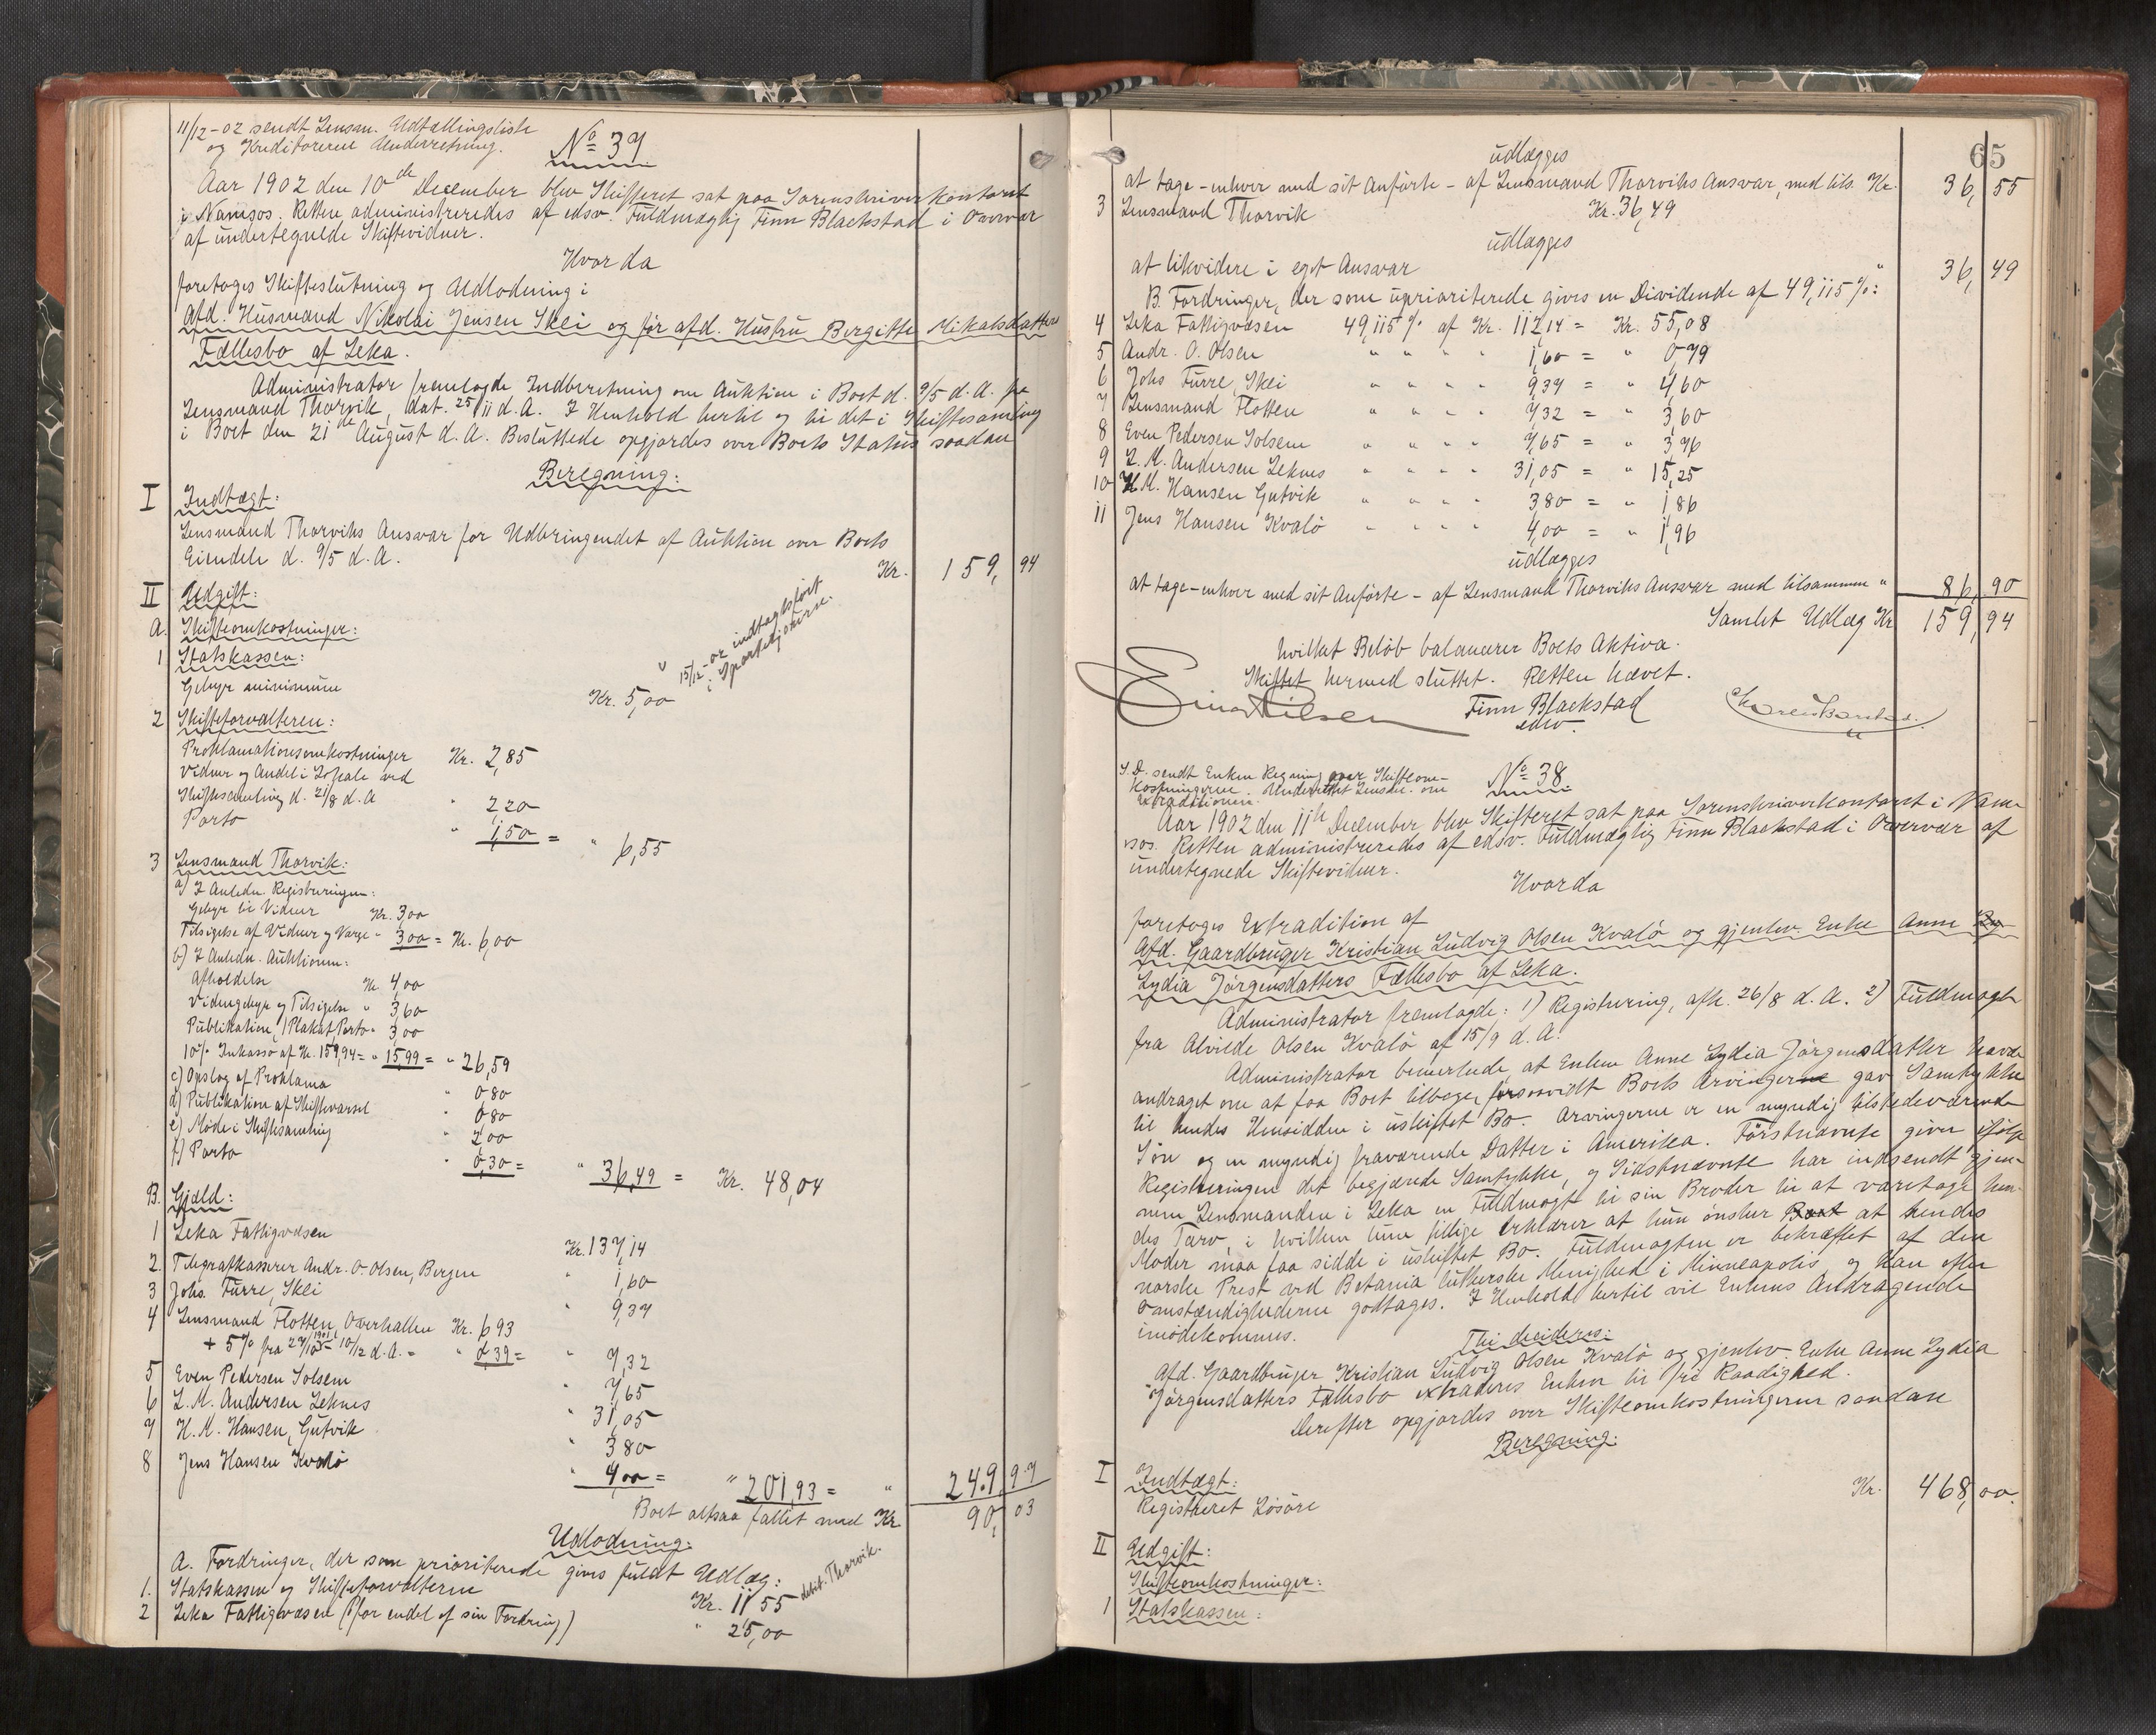 11/12-02 sendt Lensm. Udtællingsliste
og Kreditorerne Underretning.
No 39
Aar 1902 den 10de December blev Skifteret sat paa Sorenskriverkontoret
i Namsos. Retten administreredes af edsv. Fuldmægtig Finn Blackstad i Overvær
af undertegnede Skiftevidner.
Hvorda
foretoges Skifteslutning og Udlodning i
Afd. Husmand Nikolai Jensen Skei og før afd. Hustru Bergitte Mikalsdatters
Fællesbo af Leka.
Administrator fremlagde Indberetning om Auktion i Boet d. 9/5 d.A. fra
Lensmand Thorvik, dat. 25/11 d.A. I Henhold hertil og til det i Skiftesamling
i Boet den 21de August d.A. Besluttede opgjordes over Boets Status saadan
Beregning:
I Indtægt:
Lensmand Thorviks Ansvar for Udbringendet af Auktion over Boets
Eiendele d. 9/5 d.A. Kr. 159,94
II Udgift:
A. Skifteomkostninger:
1 Statskassen:
Gebyr minimum Kr. 5,00
15/12-02 indtægtsført
i Sporteljournal.
2 Skifteforvalteren:
Proklamationsomkostninger Kr. 2,85
Vidner og Andel i Lokale ved
Skiftesamling d. 21/8 d.A " 2 20
Porto " 1,50 = " 6,55
3 Lensmand Thorvik:
a) I Anledn. Registreringen:
Gebyr til Vidner Kr. 3,00
Tilsigelse af Vidner og Værge " 3,00 = Kr. 6,00
b) I Anledn. Auktionen:
Afholdelse Kr. 4,00
Vidnegebyr og Tilsigelse " 3,60
Publikation, 1 Plakat, Porto " 3,00
10% Inkasso af Kr. 159,94 = " 15,99 = " 26,59
c) Opslag af Proklama " 0 80
d) Publikation af Skiftevarsel " 0,80
e) Møde i Skiftesamling " 2 00
f) Porto " 0,30 = " 36,49 = Kr. 48,04
B. Gjæld:
1 Leka Fattigvæsen Kr. 137,14
2. Telegrafkasserer Andr. O. Olsen, Bergen " 1,60
3 Johs. Furre, Skei " 9,37
4 Lensmand Flotten, Overhallen Kr. 6 93
+ 5% fra 27/10 1901 - 10/12 d.A. = " 0,39 = " 7,32
5 Even Pedersen Solsem " 7,65
6 L.M. Andersen Leknes " 31,05
7 H.M. Hansen, Gutvik " 3 80
8 Jens Hansen Kvalø " 4,00 = " 201,93 = " 249,97
Boet altsaa fallit med Kr. 90,03
Udlodning:
A. Fordringer, der som prioriterede gives fuldt Udlæg:
1. Statskassen og Skifteforvalteren Kr. 11 55 debit. Thorvik.
2 Leka Fattigvæsen (for endel af sin Fordring) " 25,00
65
udlægges
at tage - enhver med sit Anførte - af Lensmand Thorviks Ansvar, med tils. Kr. 36,55
3 Lensmand Thorvik Kr. 36,49
udlægges
at likvidere i eget Ansvar " 36,49
B. Fordringer, der som uprioriterede gives en Dividende af 49,115 %:
4 Leka Fattigvæsen 49,115 % af Kr. 112,14 = Kr. 55,08
5 Andr. O. Olsen " " " " 1,60 = " 0,79
6 Johs Furre, Skei " " " " 9,37 = " 4,60
7 Lensmand Flotten " " " " 7,32 = " 3,60
8 Even Pedersen Solsem " " " " 7,65 = " 3,76
9 L.M. Andersen Leknes " " " " 31,05 = " 15,25
10 H.M. Hansen Gutvik " " " " 3 80 = " 1,86
11 Jens Hansen Kvalø " " " " 4,00 = " 1,96
udlægges
at tage - enhver med sit Anførte - af Lensmand Thorviks Ansvar med tilsammen " 86,90
Samlet Udlæg Kr 159,94
hvilket Beløb balancerer Boets Aktiva.
Skiftet hermed sluttet. Retten hævet.
Einar Nilsen Finn Blackstad
edsv.
S.D. sendt Enken Regning over Skifteom-
kostningerne. Underrettet Lensm. om
Extraditionen.
No 38
Aar 1902 den 11te December blev Skifteret sat paa Sorenskriverkontoret i Nam-
sos. Retten administreredes af edsv. Fuldmægtig Finn Blackstad i Overvær af
undertegnede Skiftevidner.
Hvorda
foretoges Extradition af
Afd. Gaardbruger Kristian Ludvig Olsen Kvalø og gjenlev. Enke Anne
Lydia Jørgensdatters Fællesbo af Leka.
Administrator fremlagde: 1) Registrering, afh. 26/8 d.A. 2) Fuldmagt
fra Alvilde Olsen Kvalø af 15/9 d.A.
Administrator bemerkede, at Enken Anne Lydia Jørgensdatter havde
andraget om at faa Boet tilbage, forsaavidt Boets Arvingerne gav Samtykke
til hendes Hensidden i uskiftet Bo. Arvingerne er en myndig tilstedeværende
Søn og en myndig fraværende Datter i Amerika. Førstnævnte giver ifølge
Registreringen det begjærede Samtykke, og Sidstnævnte har indsendt gjen-
nem Lensmanden i Leka en Fuldmagt til sin Broder til at varetage hen-
des Tarv, i hvilken hun tillige erklærer at hun ønsker Boet at hendes
Moder maa faa sidde i uskiftet Bo. Fuldmagten er bekræftet af den
norske Prest ved Betania lutherske Menighed i Minneapolis, og kan efter
Omstændighederne godtages. I Henhold hertil vil Enkens Andragende
imødekommes.
Thi decideres:
Afd. Gaardbruger Kristian Ludvig Olsen Kvalø og gjenlev. Enke Anne Lydia
Jørgensdatters Fællesbo extraderes Enken til fri Raadighed.
Derefter opgjordes over Skifteomkostningerne saadan
Beregning:
I Indtægt:
Registreret Løsøre Kr. 468,00.
II Udgift:
Skifteomkostninger:
1 Statskassen: